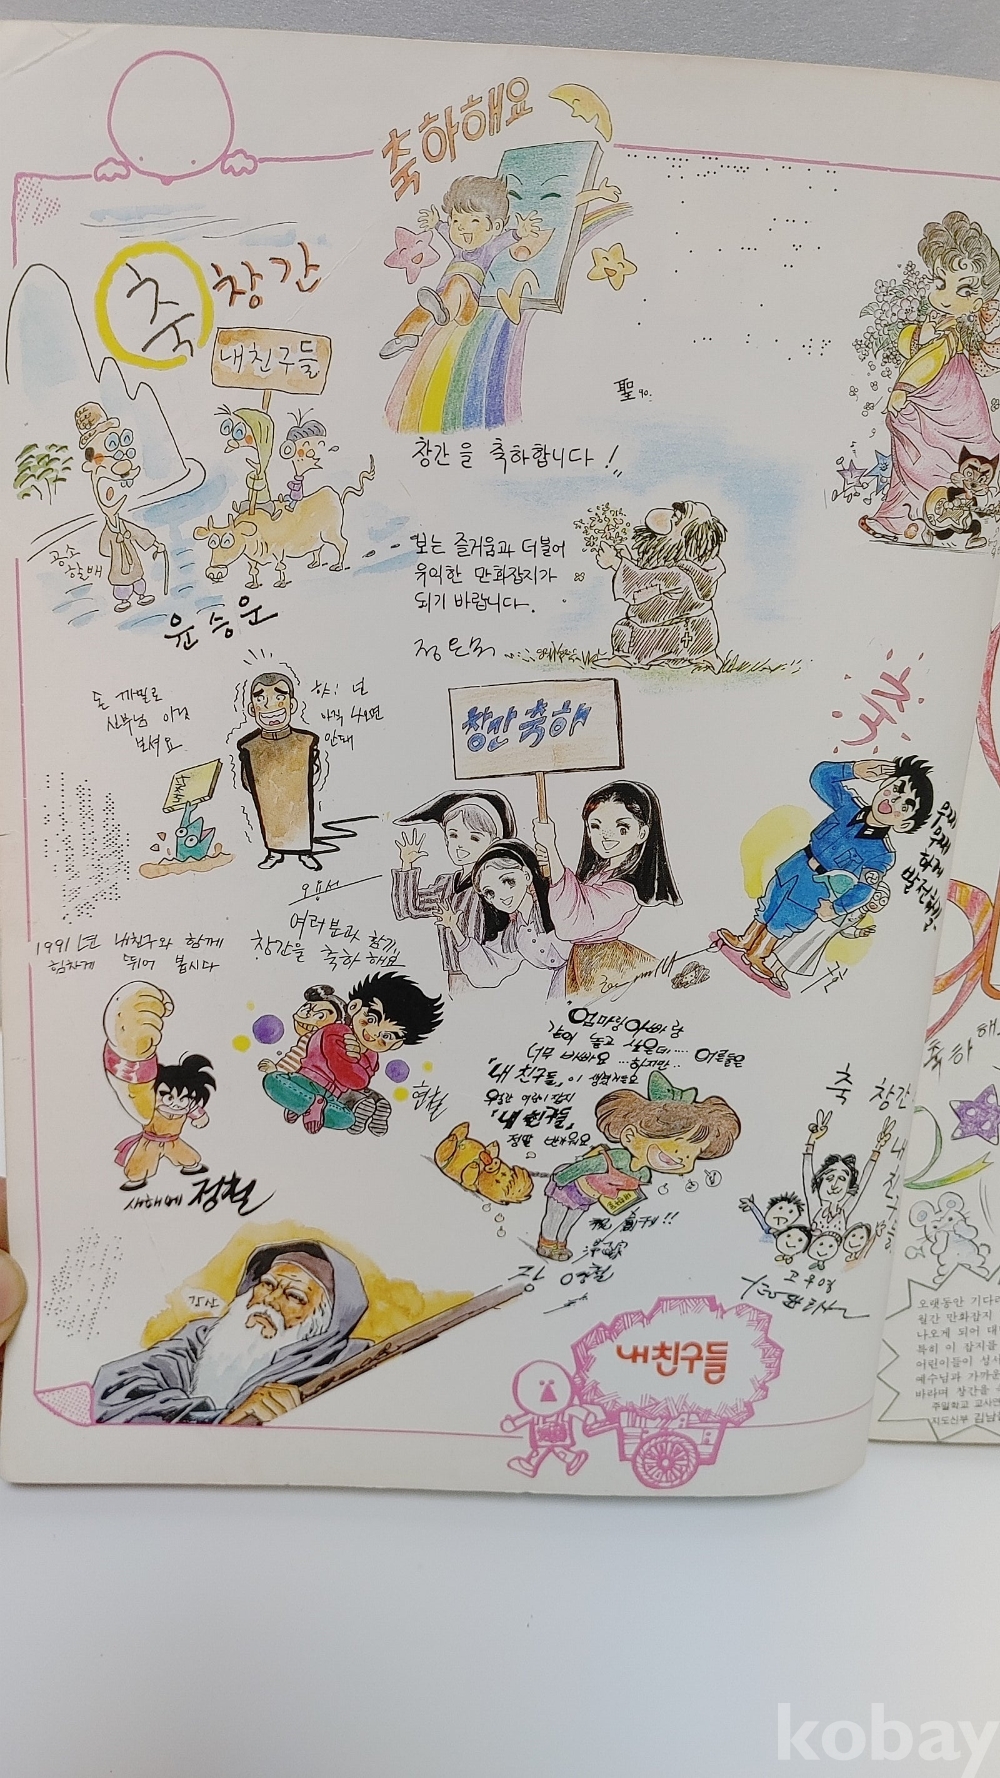 축하해요
축 창간
내친구들
공손
할배
윤승운
聖 90.
창간을 축하합니다!
보는 즐거움과 더불어
유익한 만화잡지가
되기 바랍니다.
돈 까밀로
신부님 이것
보셔요
야! 넌
아직 나오면
안돼
오용석
창간 축하
축
무궁
무궁
하게
발전해요.
1991년 내친구와 함께
힘차게 뛰어 봅시다
여러분과 함께
창간을 축하해요
현철
새해에 정철
엄마랑 아빠랑
같이 놀고 싶은데....
너무 바빠요 ...하지만.. 어른들은
"내 친구들" 이 생겼거든요
우리들 어린이 잡지
"내 친구들"
정말 반가워요
祝 創刊!!
장 영철
축 창간
내 친구들
고우영
강산
내친구들
축하
오랫동안 기다리
월간 만화잡지
나오게 되어 대단
특히 이 잡지를
어린이들이 성서
예수님과 가까운
바라며 창간을
주일학교 교사연
지도신부 김남
kobay